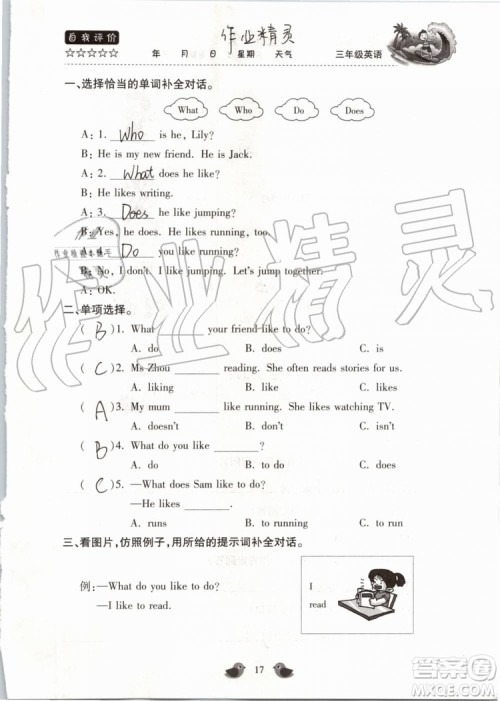 自我评价
作业精灵
☆☆☆☆☆ 年 月 日 星期 天气 三年级英语
一、选择恰当的单词补全对话。
What Who Do Does
A: 1. Who is he, Lily?
B: He is my new friend. He is Jack.
A: 2. What does he like?
B: He likes writing.
A: 3. Does he like jumping?
B: Yes, he does. He likes running, too.
A: 4. Do you like running?
B: No, I don't. I like jumping. Let's jump together.
A: OK.
二、单项选择。
( B )1. What ______ your friend like to do?
A. do B. does C. is
( C )2. Ms Zhou ______ reading. She often reads stories for us.
A. liking B. like C. likes
( A )3. My mum ______ like running. She likes watching TV.
A. doesn't B. don't C. isn't
( B )4. What do you like ______?
A. do B. to do C. does
( C )5. —What does Sam like to do?
—He likes ______.
A. runs B. to running C. to run
三、看图片,仿照例子,用所给的提示词补全对话。
例: —What do you like to do?
—I like to read.
I
read
17
作业精灵
答案圈
MXQE.COM